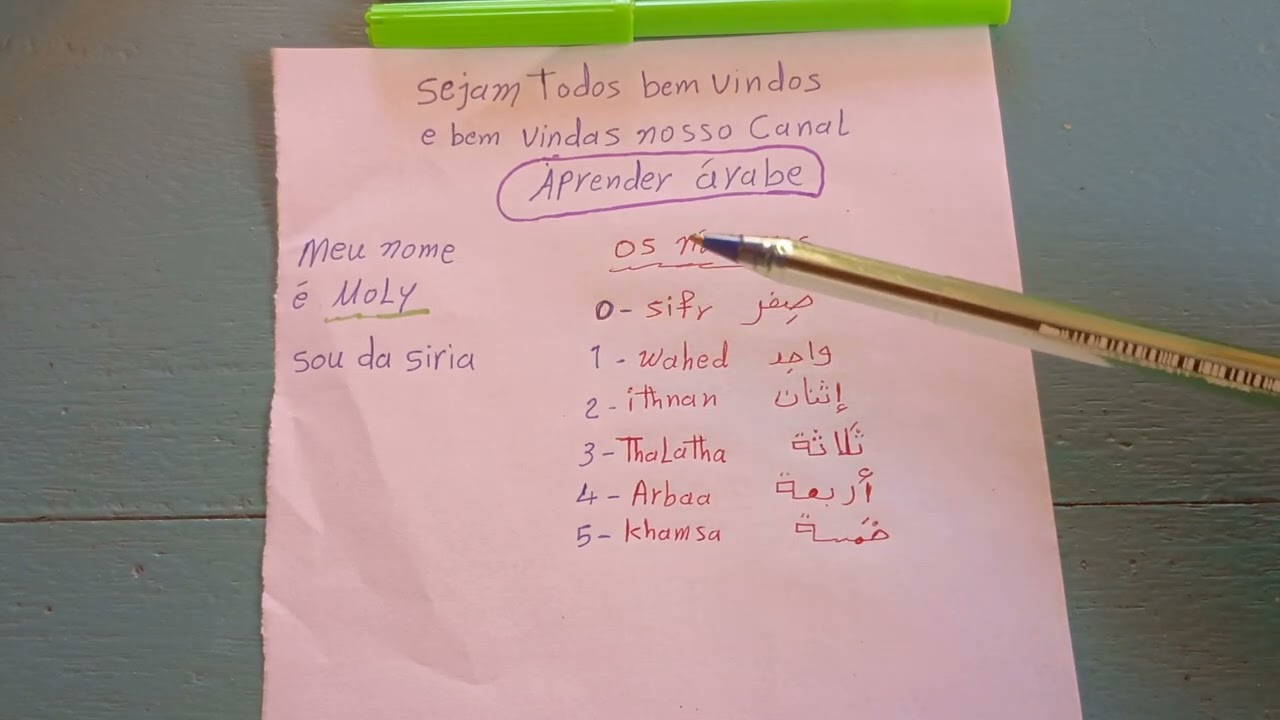 Sejam Todos bem vindos
e bem vindas nosso Canal
Aprender árabe
Meu nome
é MOLY
sou da siria
os
0 - sifr صِفر
1 - wahed واحِد
2 - ithnan إثنان
3 - Thalatha ثَلاثة
4 - Arbaa أربعة
5 - khamsa خَمسة